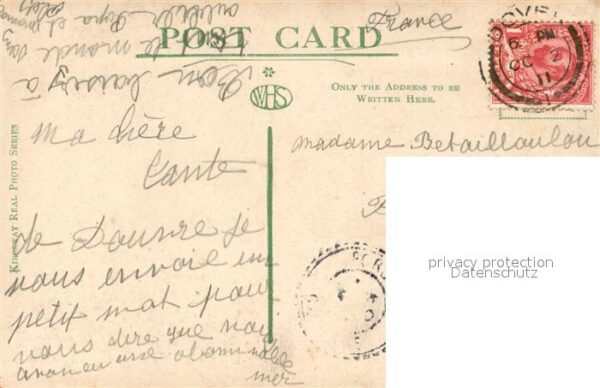 France
POST CARD
DOVER
6 PM
OC 2
11
ONLY THE ADDRESS TO BE
WRITTEN HERE.
WHS
KINGSWAY REAL PHOTO SERIES
ma chère
Tante
de Douvre je
vous envoie un
petit mot pour
vous dire que nous
avons eu une abominable
mer
Bon baiser à
le monde
Madame
privacy protection
Datenschutz